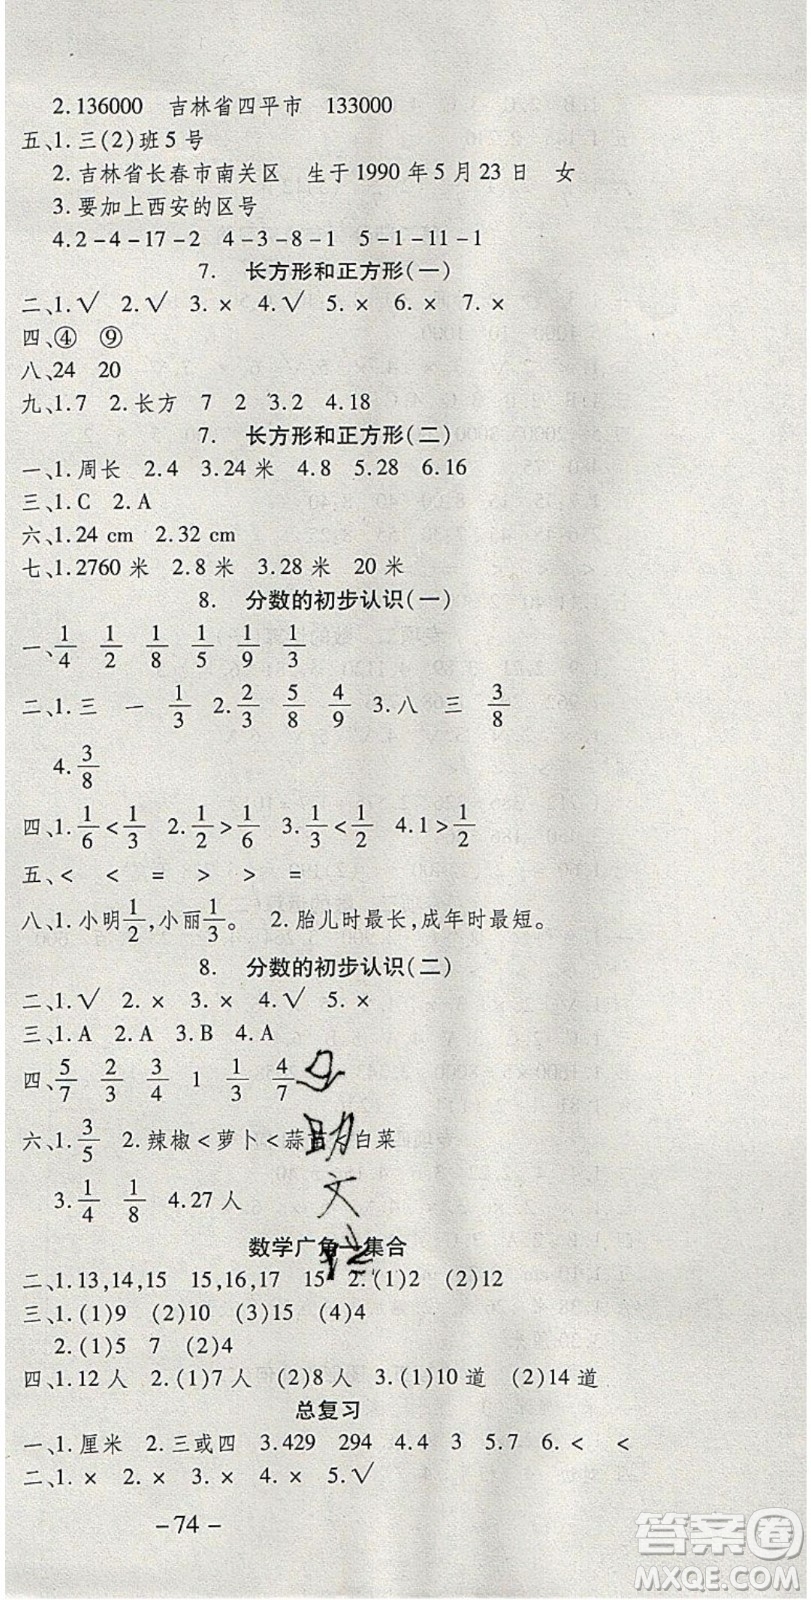 2.136000 吉林省四平市 133000
五、1.三(2)班5号
2.吉林省长春市南关区 生于1990年5月23日 女
3.要加上西安的区号
4.2-4-17-2 4-3-8-1 5-1-11-1
7. 长方形和正方形(一)
二、1.√ 2.√ 3.× 4.√ 5.× 6.× 7.×
四、④ ⑨
八、24 20
九、1.7 2.长方 7 2 3.2 4.18
7. 长方形和正方形(二)
一、1.周长 2.4 3.24米 4.8 5.28 6.16
三、1.C 2.A
六、1.24 cm 2.32 cm
七、1.2760米 2.8米 3.31米 20米
8. 分数的初步认识(一)
一、1/4 1/2 1/8 1/5 1/9 1/3
二、1.三 一 1/3 2.2/3 5/8 4/9 3.八 三 3/8
4.3/8
四、1.1/6<1/3 2.1/2>1/6 3.1/3<1/2 4.1>1/2
五、< < = > > =
八、1.小明1/2,小丽1/3。 2.胎儿时最长,成年时最短。
8. 分数的初步认识(二)
二、1.√ 2.× 3.× 4.√ 5.×
三、1.A 2.A 3.B 4.A
四、5/7 2/3 3/4 1 1/3 4/7
六、1.3/5 2.辣椒<萝卜<蒜苗<白菜
3.1/4 1/8 4.27人
数学广角—集合
二、1.13,14,15 15,16,17 15 2.(1)2 (2)12
三、1.(1)9 (2)10 (3)15 (4)4
2.(1)5 7 (2)4
四、1.12人 2.(1)7人 (2)8人 3.(1)10道 (2)14道
总复习
一、1.厘米 2.三或四 3.429 294 4.4 3 5.7 6.< <
二、1.× 2.× 3.× 4.× 5.√
-74-
答案圈
MXQE.COM